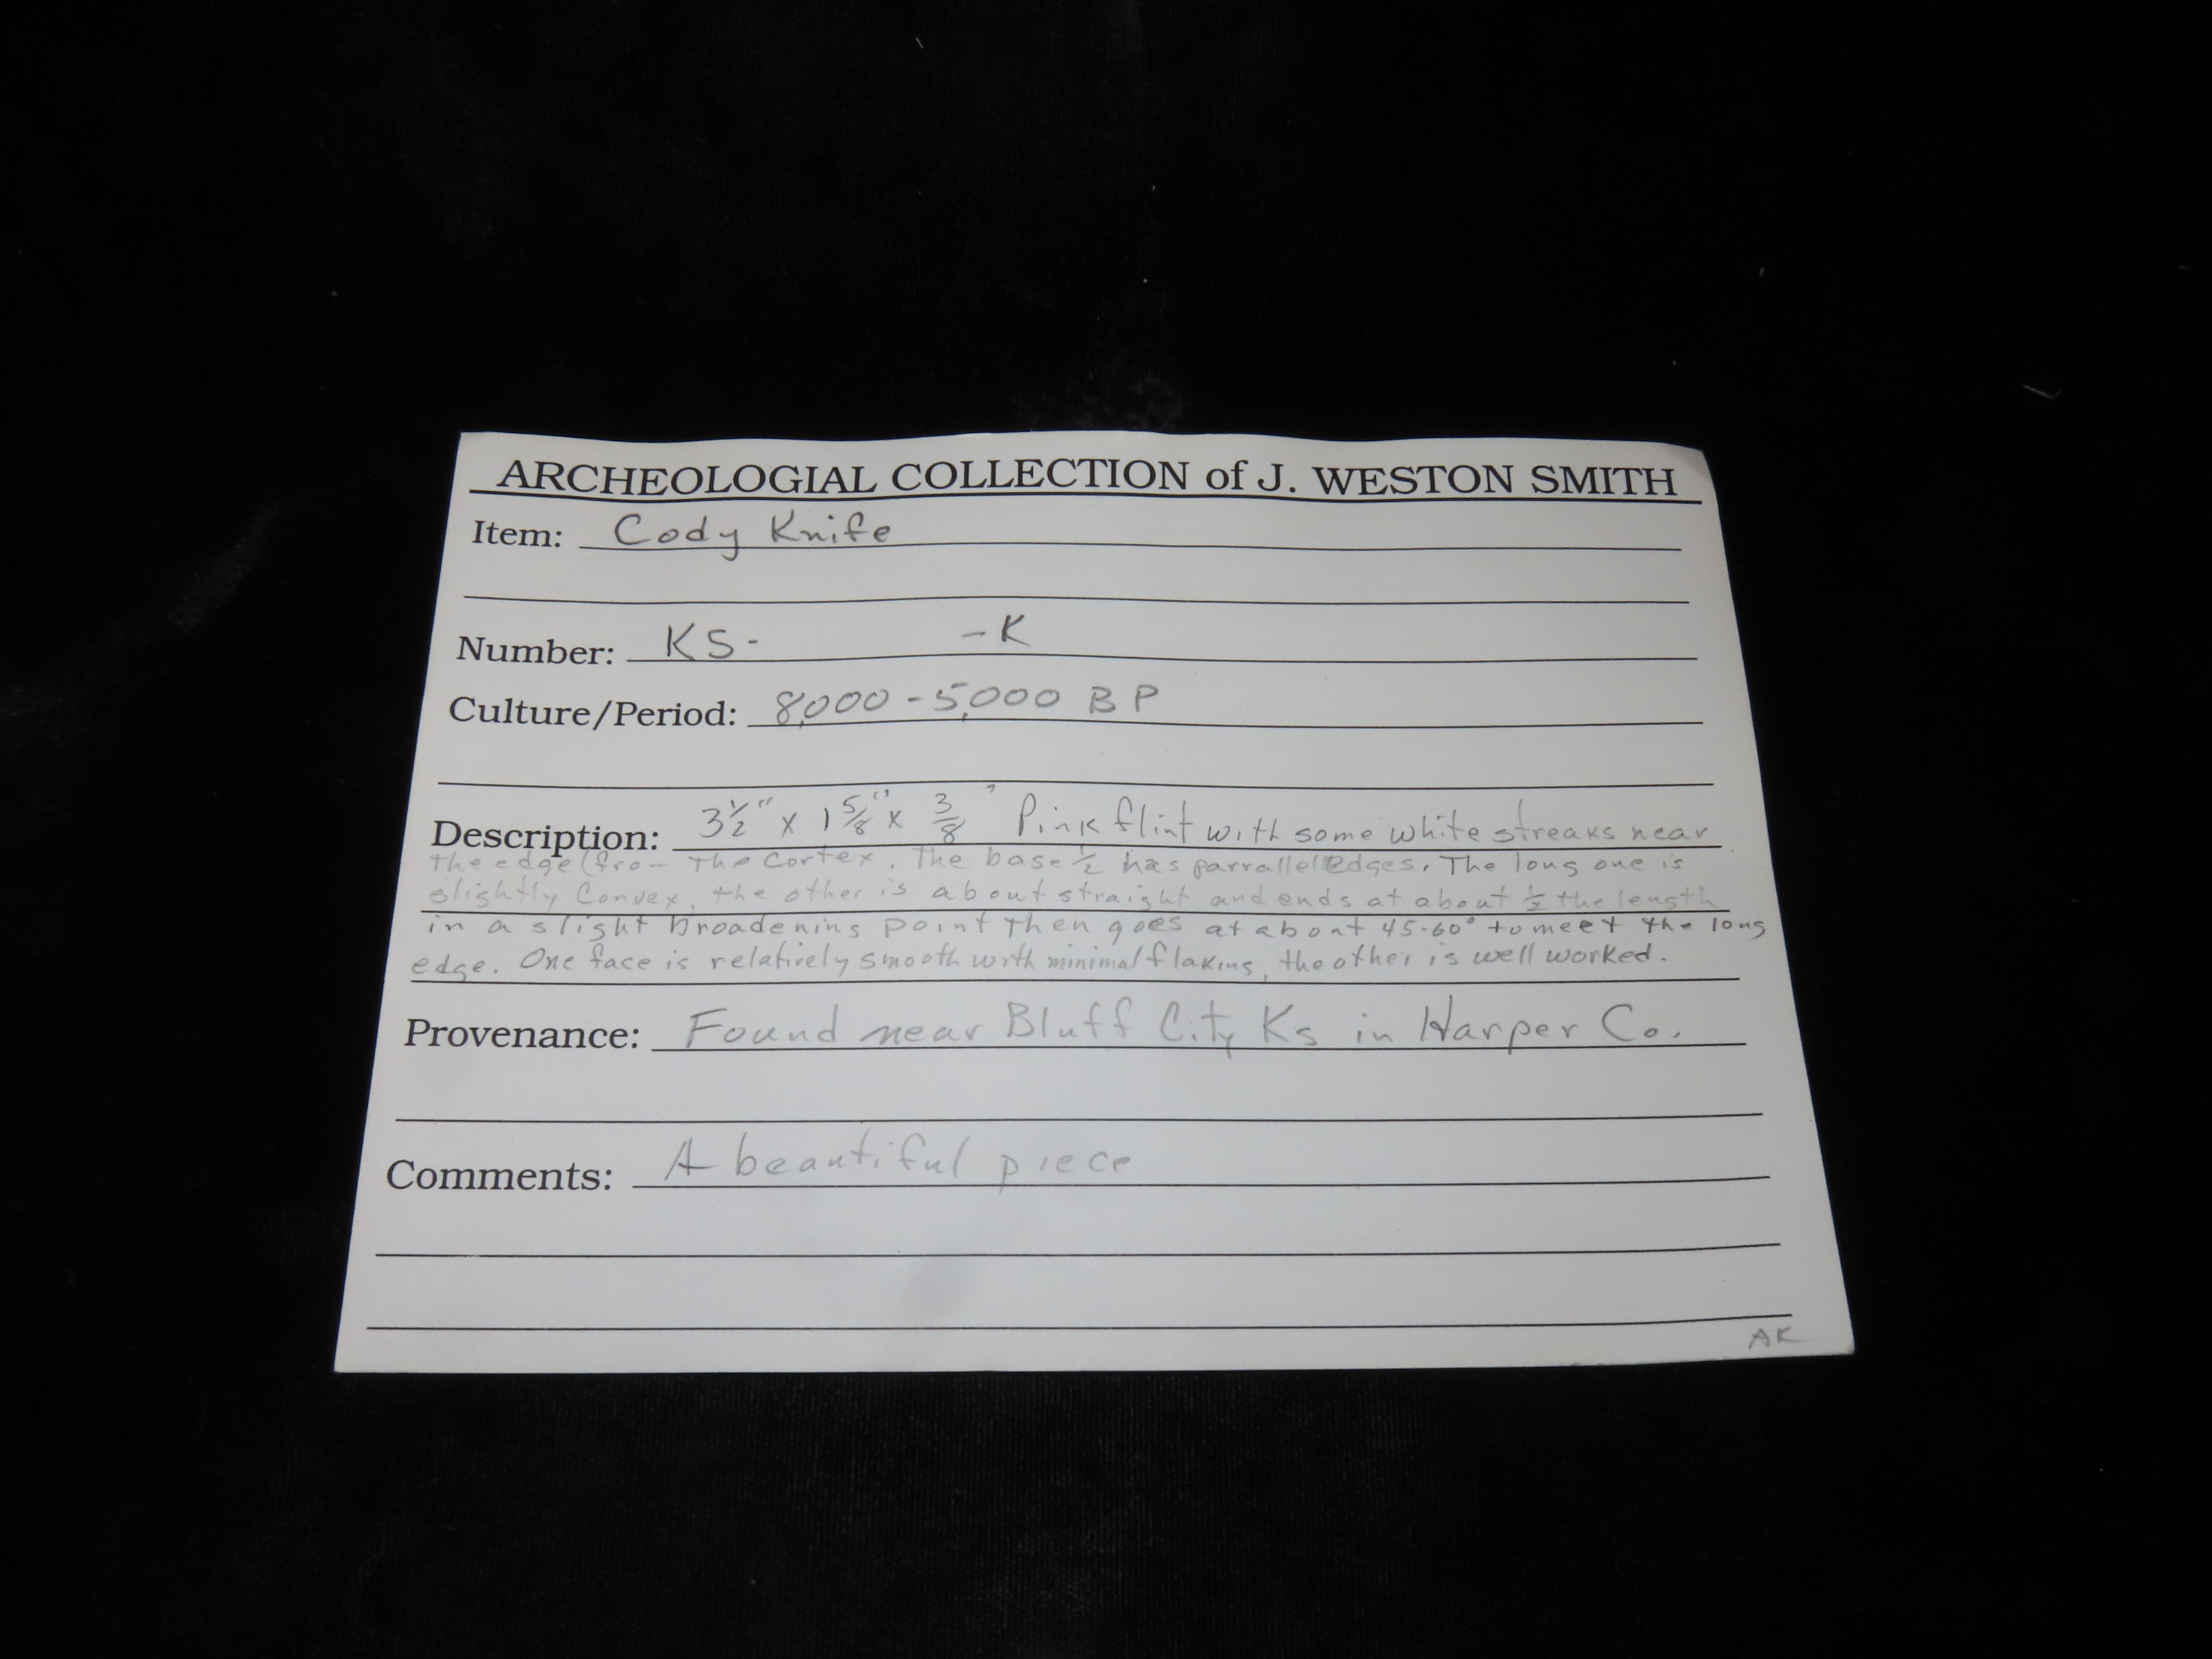 ARCHEOLOGIAL COLLECTION of J. WESTON SMITH
Item: Cody Knife
Number: KS- -K
Culture/Period: 8,000-5,000 BP
Description: 3 1/2" x 1 5/8" x 3/8" Pink flint with some white streaks near
the edge (from the Cortex. The base 1/2 has parralell edges. The long one is
slightly Convex, the other is about straight and ends at about 1/2 the length
in a slight broadening point then goes at about 45-60° to meet the long
edge. One face is relatively smooth with minimal flaking, the other is well worked.
Provenance: Found near Bluff City Ks in Harper Co.
Comments: A beautiful piece
AK